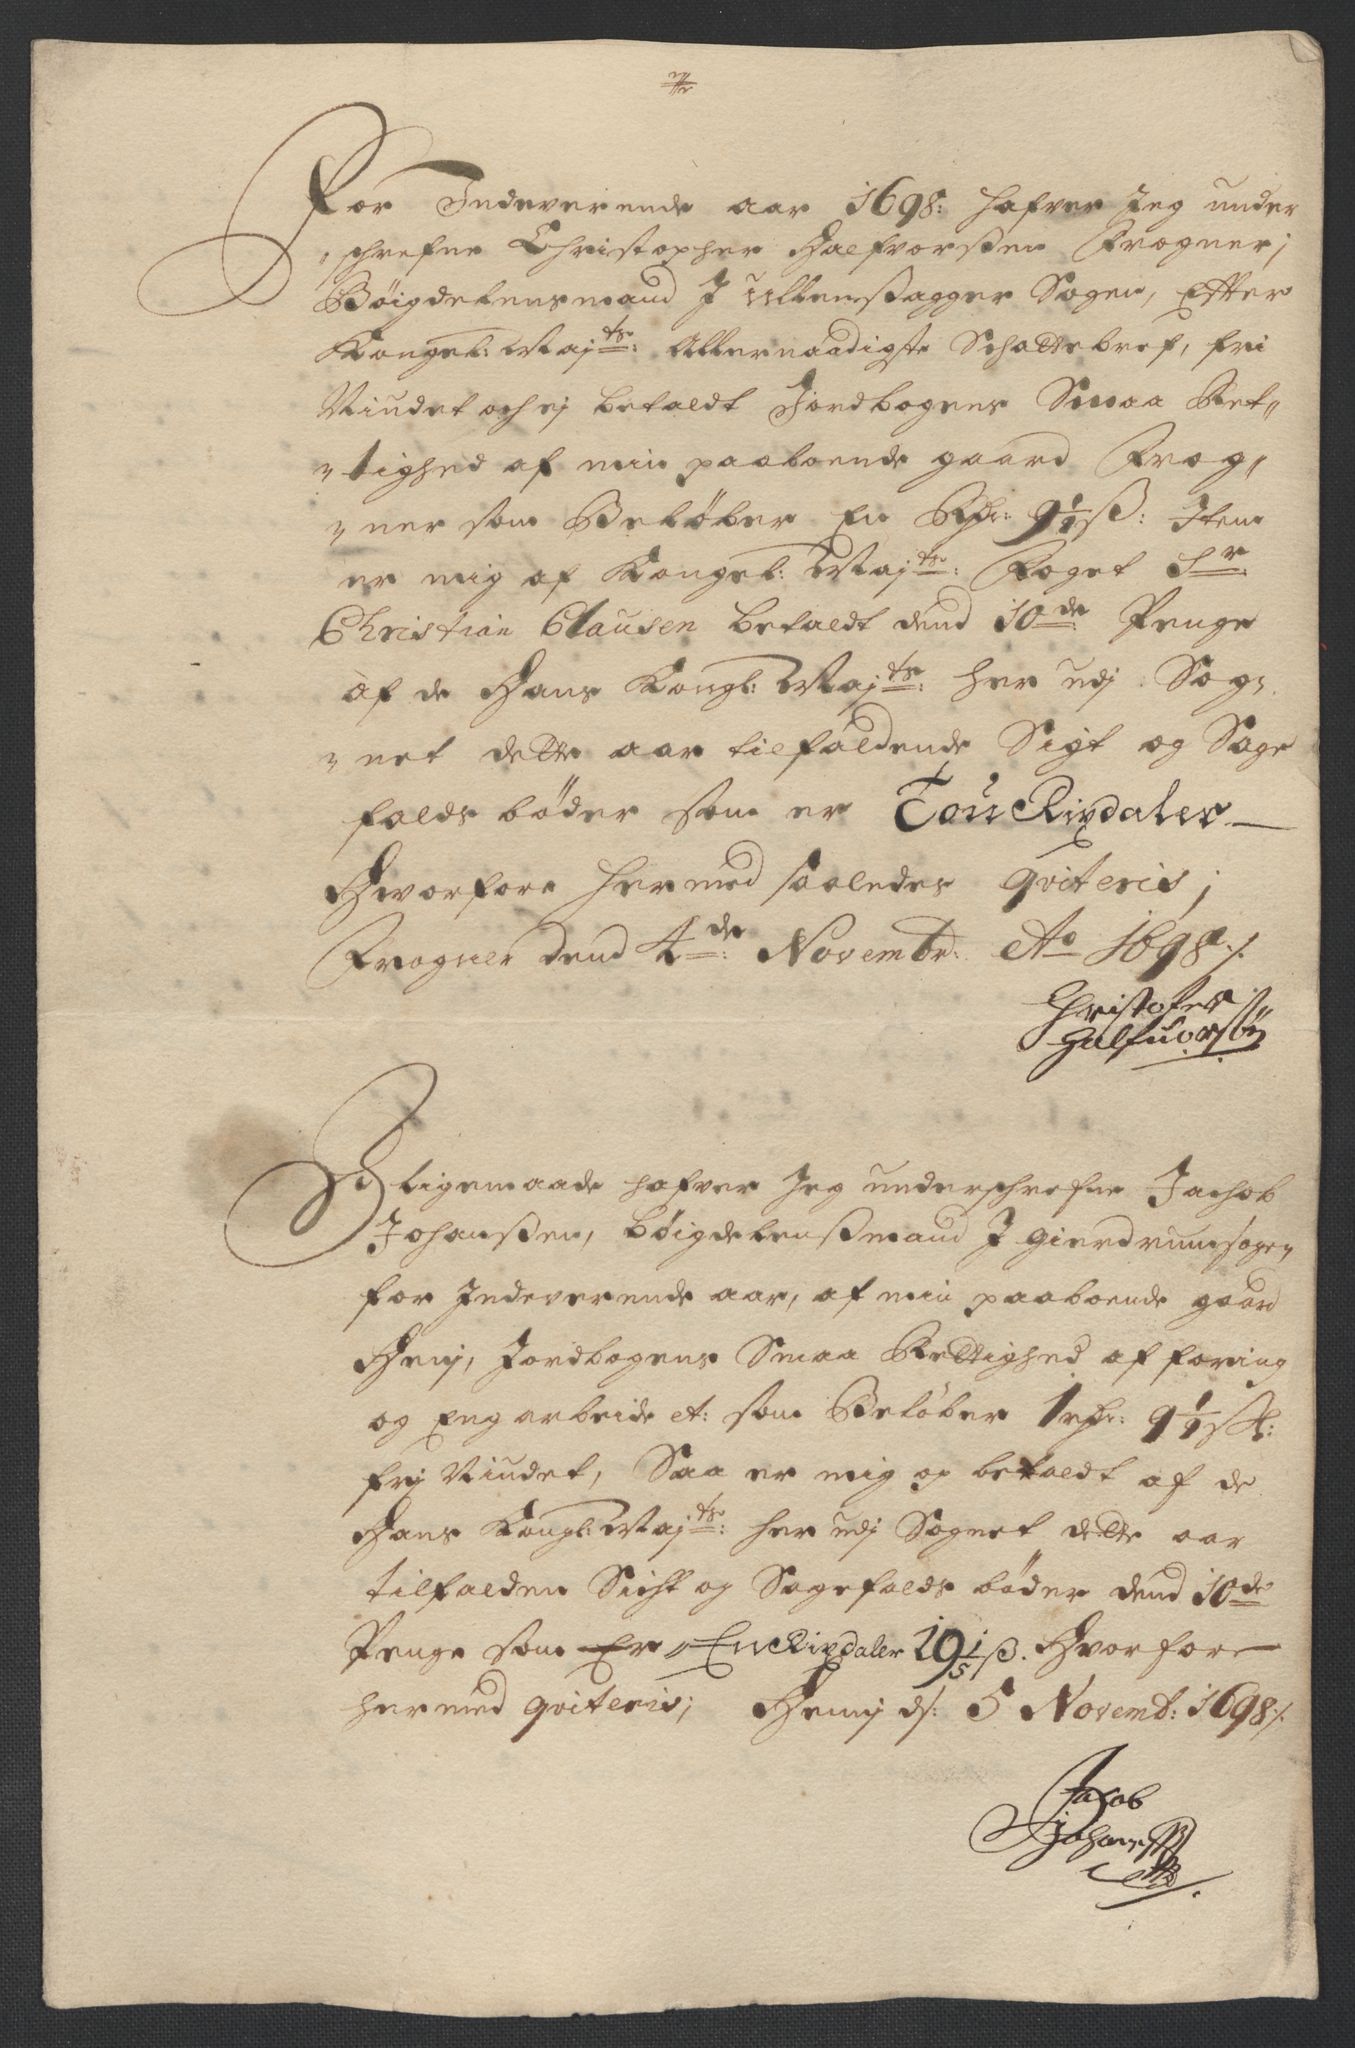 For Indeverende aar 1698: hafver Jeg under
"schrefne Christopher Halfvorßen Frogner;
Böigdelensmand J Ullensagger Sogen, Effter
Kongel: Maj:ts: Allernaadigste Schattebref, fri
Niudet och ej betaldt Jordbogens Smaa Ret"
"tighed af min paaboende gaard Frog"
"ner som Belöber En Rdr: 9½ ß: Item
er mig af Kongel: Maj:ts: Foget Sr.
Christian Clausen betaldt dend 10de Penge
af de Hans Kongl: Maj:ts: her udj Sog"
"net dette aar tilfaldende Sigt og Sage
falds böder som er Tou Rixdaler
Hworfore hermed saaledes qviteris;
Frogner dend 4de: Novembr: Ao 1698 ./.
Christofer
Halfuorsön
Ligemaade hafver Jeg underschrefne Jachob
Johanßen, böigdelenßmand J Gierdrum sogen
for Indeverende aar, af min paaboende gaard
Henj, Jordbogens Smaa Rettighed af foring
og Engarbeide et: som Belöber 1 rdr: 9½ sk:
frj Niudet, Saa er mig op betaldt af de
Hans Kongl: Maj:ts: her udj Sognet dette aar
tilfalden Sicht og Sagefalds böder dend 10de
Penge som Er En Rixdaler 19 1/5 ß. Hvorfore
hermed qviteris; Hennj ds: 5 Novemb: 1698 ./.
Jacob
Johanß